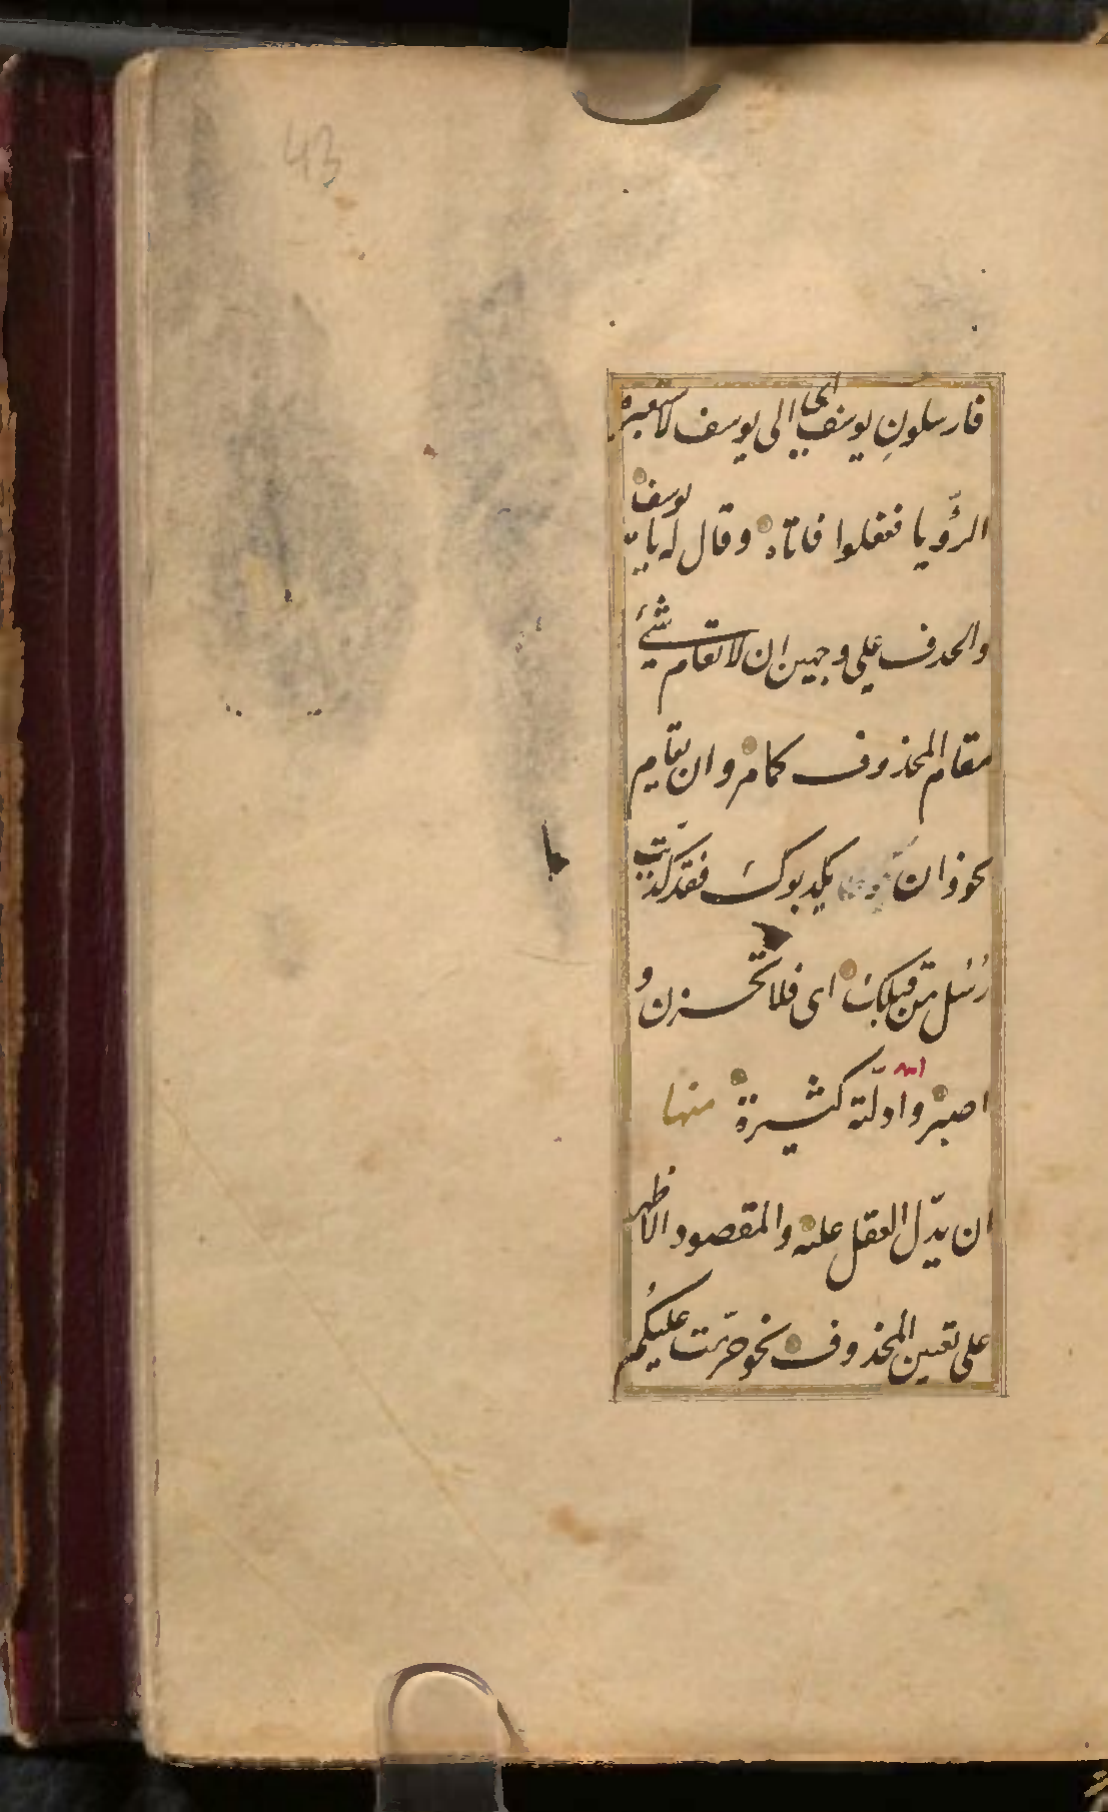 43
فارسلون يوسف اى الى يوسف لاستعبره
الرؤيا ففعلوا فاتاه وقال له يا يوسف
والحذف على وجهين ان لا يقام شئ
مقام المحذوف كما مر وان يقام
نحو وان يكذبوك فقد كذبت
رسل من قبلك اى فلا تحزن و
اصبر وادلته كثيرة منها
ان يدل العقل عليه والمقصود الاظهر
على تعيين المحذوف نحو حرمت عليكم